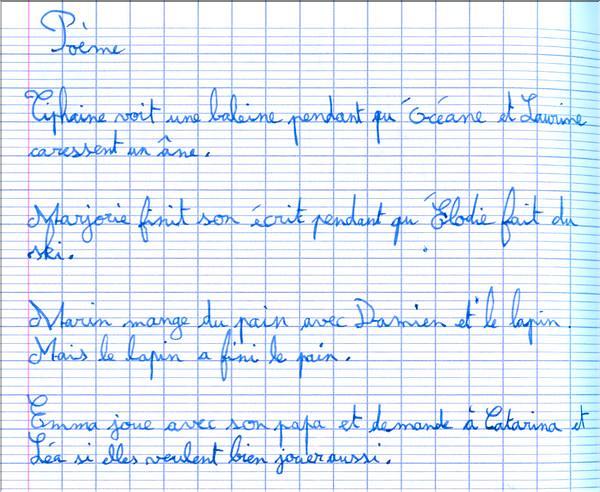 Poème
Tiphaine voit une baleine pendant qu'Océane et Laurine
caressent un âne.
Marjorie finit son écrit pendant qu'Élodie fait du
ski.
Marin mange du pain avec Damien et le lapin.
Mais le lapin a fini le pain.
Emma joue avec son papa et demande à Catarina et
Léa si elles veulent bien jouer aussi.